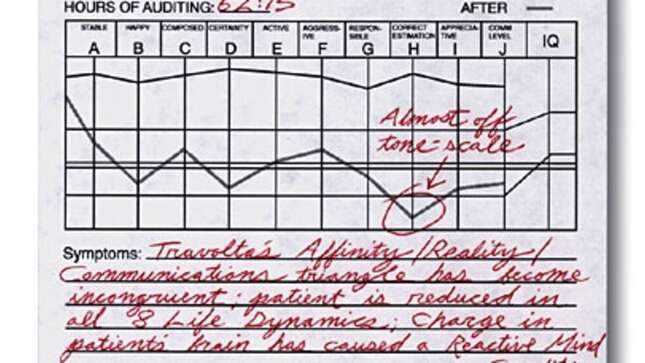 HOURS OF AUDITING: 62:15 AFTER
STABLE HAPPY COMPOSED CERTAINTY ACTIVE AGGRESS-IVE RESPON-SIBLE CORRECT ESTIMATION APPRECIA-TIVE COMM LEVEL IQ
A B C D E F G H I J
Almost off
tone-scale
Symptoms: Travolta's Affinity/Reality/
Communications triangle has become
incongruent; patient is reduced in
all 8 Life Dynamics; Charge in
patient's brain has caused a Reactive Mind